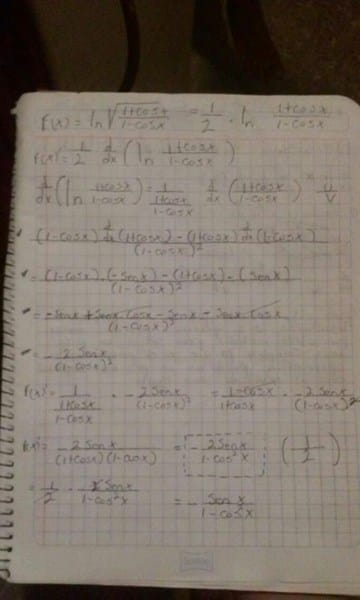 f(x) = ln √(1+cosx / 1-cosx) = 1/2 · ln 1+cosx / 1-cosx
f(x)' = 1/2 d/dx (ln 1+cosx / 1-cosx)
d/dx (ln 1+cosx / 1-cosx) = 1 / (1+cosx / 1-cosx) d/dx (1+cosx / 1-cosx) = U / V
(1-cosx) d/dx (1+cosx) - (1+cosx) d/dx (1-cosx) / (1-cosx)²
= (1-cosx) · (-senx) - (1+cosx) - (senx) / (1-cosx)²
= -senx + senx · cosx - senx - senx cosx / (1-cosx)²
= - 2 senx / (1-cosx)²
f(x)' = 1 / (1+cosx / 1-cosx) · - 2senx / (1-cosx)² = 1-cosx / 1+cosx · - 2senx / (1-cosx)²
f(x)' = - 2senx / (1+cosx)(1-cosx) = - 2senx / 1-cos²x (1/2)
= 1/2 · - 2senx / 1-cos²x = - senx / 1-cos²x